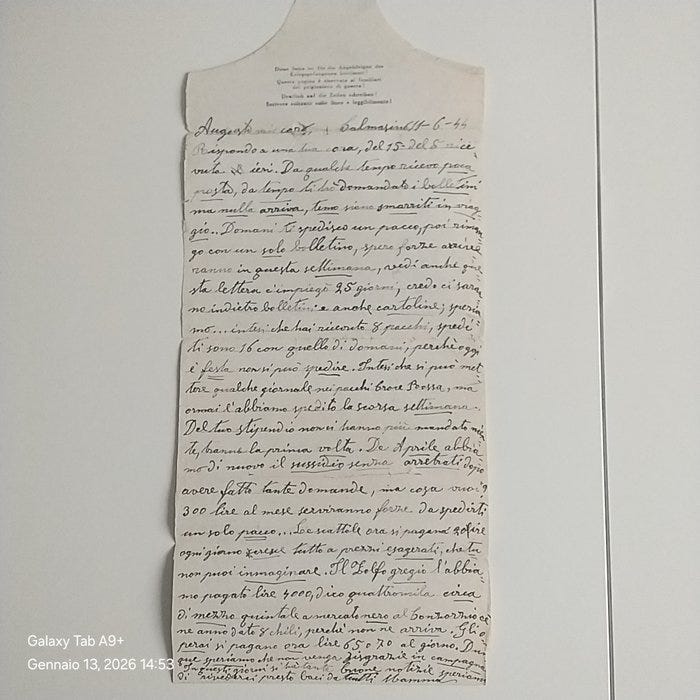 Diese Seite ist für die Angehörigen des
Kriegsgefangenen bestimmt!
Questa pagina è riservata ai familiari
del prigioniero di guerra!
Deutlich auf die Zeilen schreiben!
Scrivere soltanto sulle linee e leggibilmente!
Augusto mio caro, Calmasino 11-6-44
Rispondo a una tua cara, del 15- del 5 rice=
vuta ieri. Da qualche tempo ricevo poca
posta, da tempo ti ho domandato i bolletini
ma nulla arriva, temo siano smarriti in viag=
gio.. Domani ti spedisco un pacco, poi riman=
go con un solo bolletino, spero forze arrive=
ranno in questa settimana, vedi anche que=
sta lettera c'impiegò 25 giorni, credo ci saran=
no indietro bolletini e anche cartoline; speria=
mo... intesi che hai ricevuto 8 pacchi, spedi=
ti sono 16 con quello di domani, perchè oggi
è festa non si può spedire. Intesi che si può met=
tere qualche giornale nei pacchi Croce Rossa, ma
ormai l'abbiamo spedito la scorsa settimana.
Del tuo stipendio non ci hanno più mandato nien=
te, tranne la prima volta. De Aprile abbia=
mo di nuovo il sussidio senza arretrati dopo
avere fatto tante domande, ma cosa vuoi?
300 lire al mese serviranno forze da spedirti
un solo pacco,.. Le scattole ora si pagano lire
ogni giorno cresce tutto a prezzi esagerati, che tu
non puoi immaginare. Il Zolfo gregio l'abbia=
mo pagato lire 4000, dico quattromila circa
di mezzo quintale a mercato nero al Consorzio ce
ne anno dato 8 chili, perchè non ne arriva. Gli o=
perai si pagano ora lire 65 o 70 al giorno. Dun=
que speriamo che non venga disgrazie in campagna
In questi giorni si sentono buone notizie speriamo
di rivederci presto baci da tutti Mamma